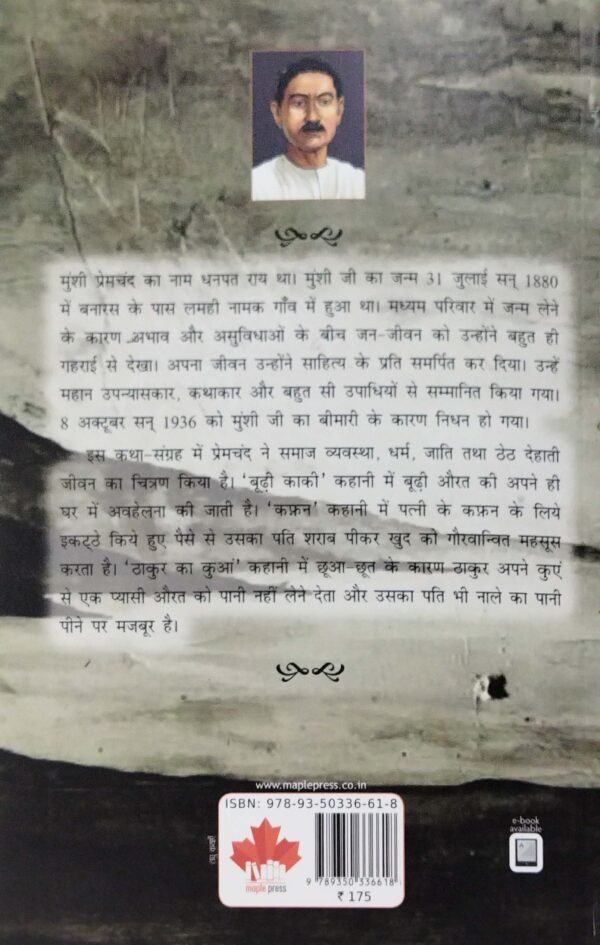 मुंशी प्रेमचंद का नाम धनपत राय था। मुंशी जी का जन्म 31 जुलाई सन् 1880
में बनारस के पास लमही नामक गाँव में हुआ था। मध्यम परिवार में जन्म लेने
के कारण अभाव और असुविधाओं के बीच जन-जीवन को उन्होंने बहुत ही
गहराई से देखा। अपना जीवन उन्होंने साहित्य के प्रति समर्पित कर दिया। उन्हें
महान उपन्यासकार, कथाकार और बहुत सी उपाधियों से सम्मानित किया गया।
8 अक्टूबर सन् 1936 को मुंशी जी का बीमारी के कारण निधन हो गया।
इस कथा-संग्रह में प्रेमचंद ने समाज व्यवस्था, धर्म, जाति तथा ठेठ देहाती
जीवन का चित्रण किया है। 'बूढ़ी काकी' कहानी में बूढ़ी औरत की अपने ही
घर में अवहेलना की जाती है। 'कफ़न' कहानी में पत्नी के कफ़न के लिये
इकट्ठे किये हुए पैसे से उसका पति शराब पीकर खुद को गौरवान्वित महसूस
करता है। 'ठाकुर का कुआं' कहानी में छूआ-छूत के कारण ठाकुर अपने कुएं
से एक प्यासी औरत को पानी नहीं लेने देता और उसका पति भी नाले का पानी
पीने पर मजबूर है।
www.maplepress.co.in
ISBN: 978-93-50336-61-8
maple press
9 789350 336618
₹ 175
e-book
available